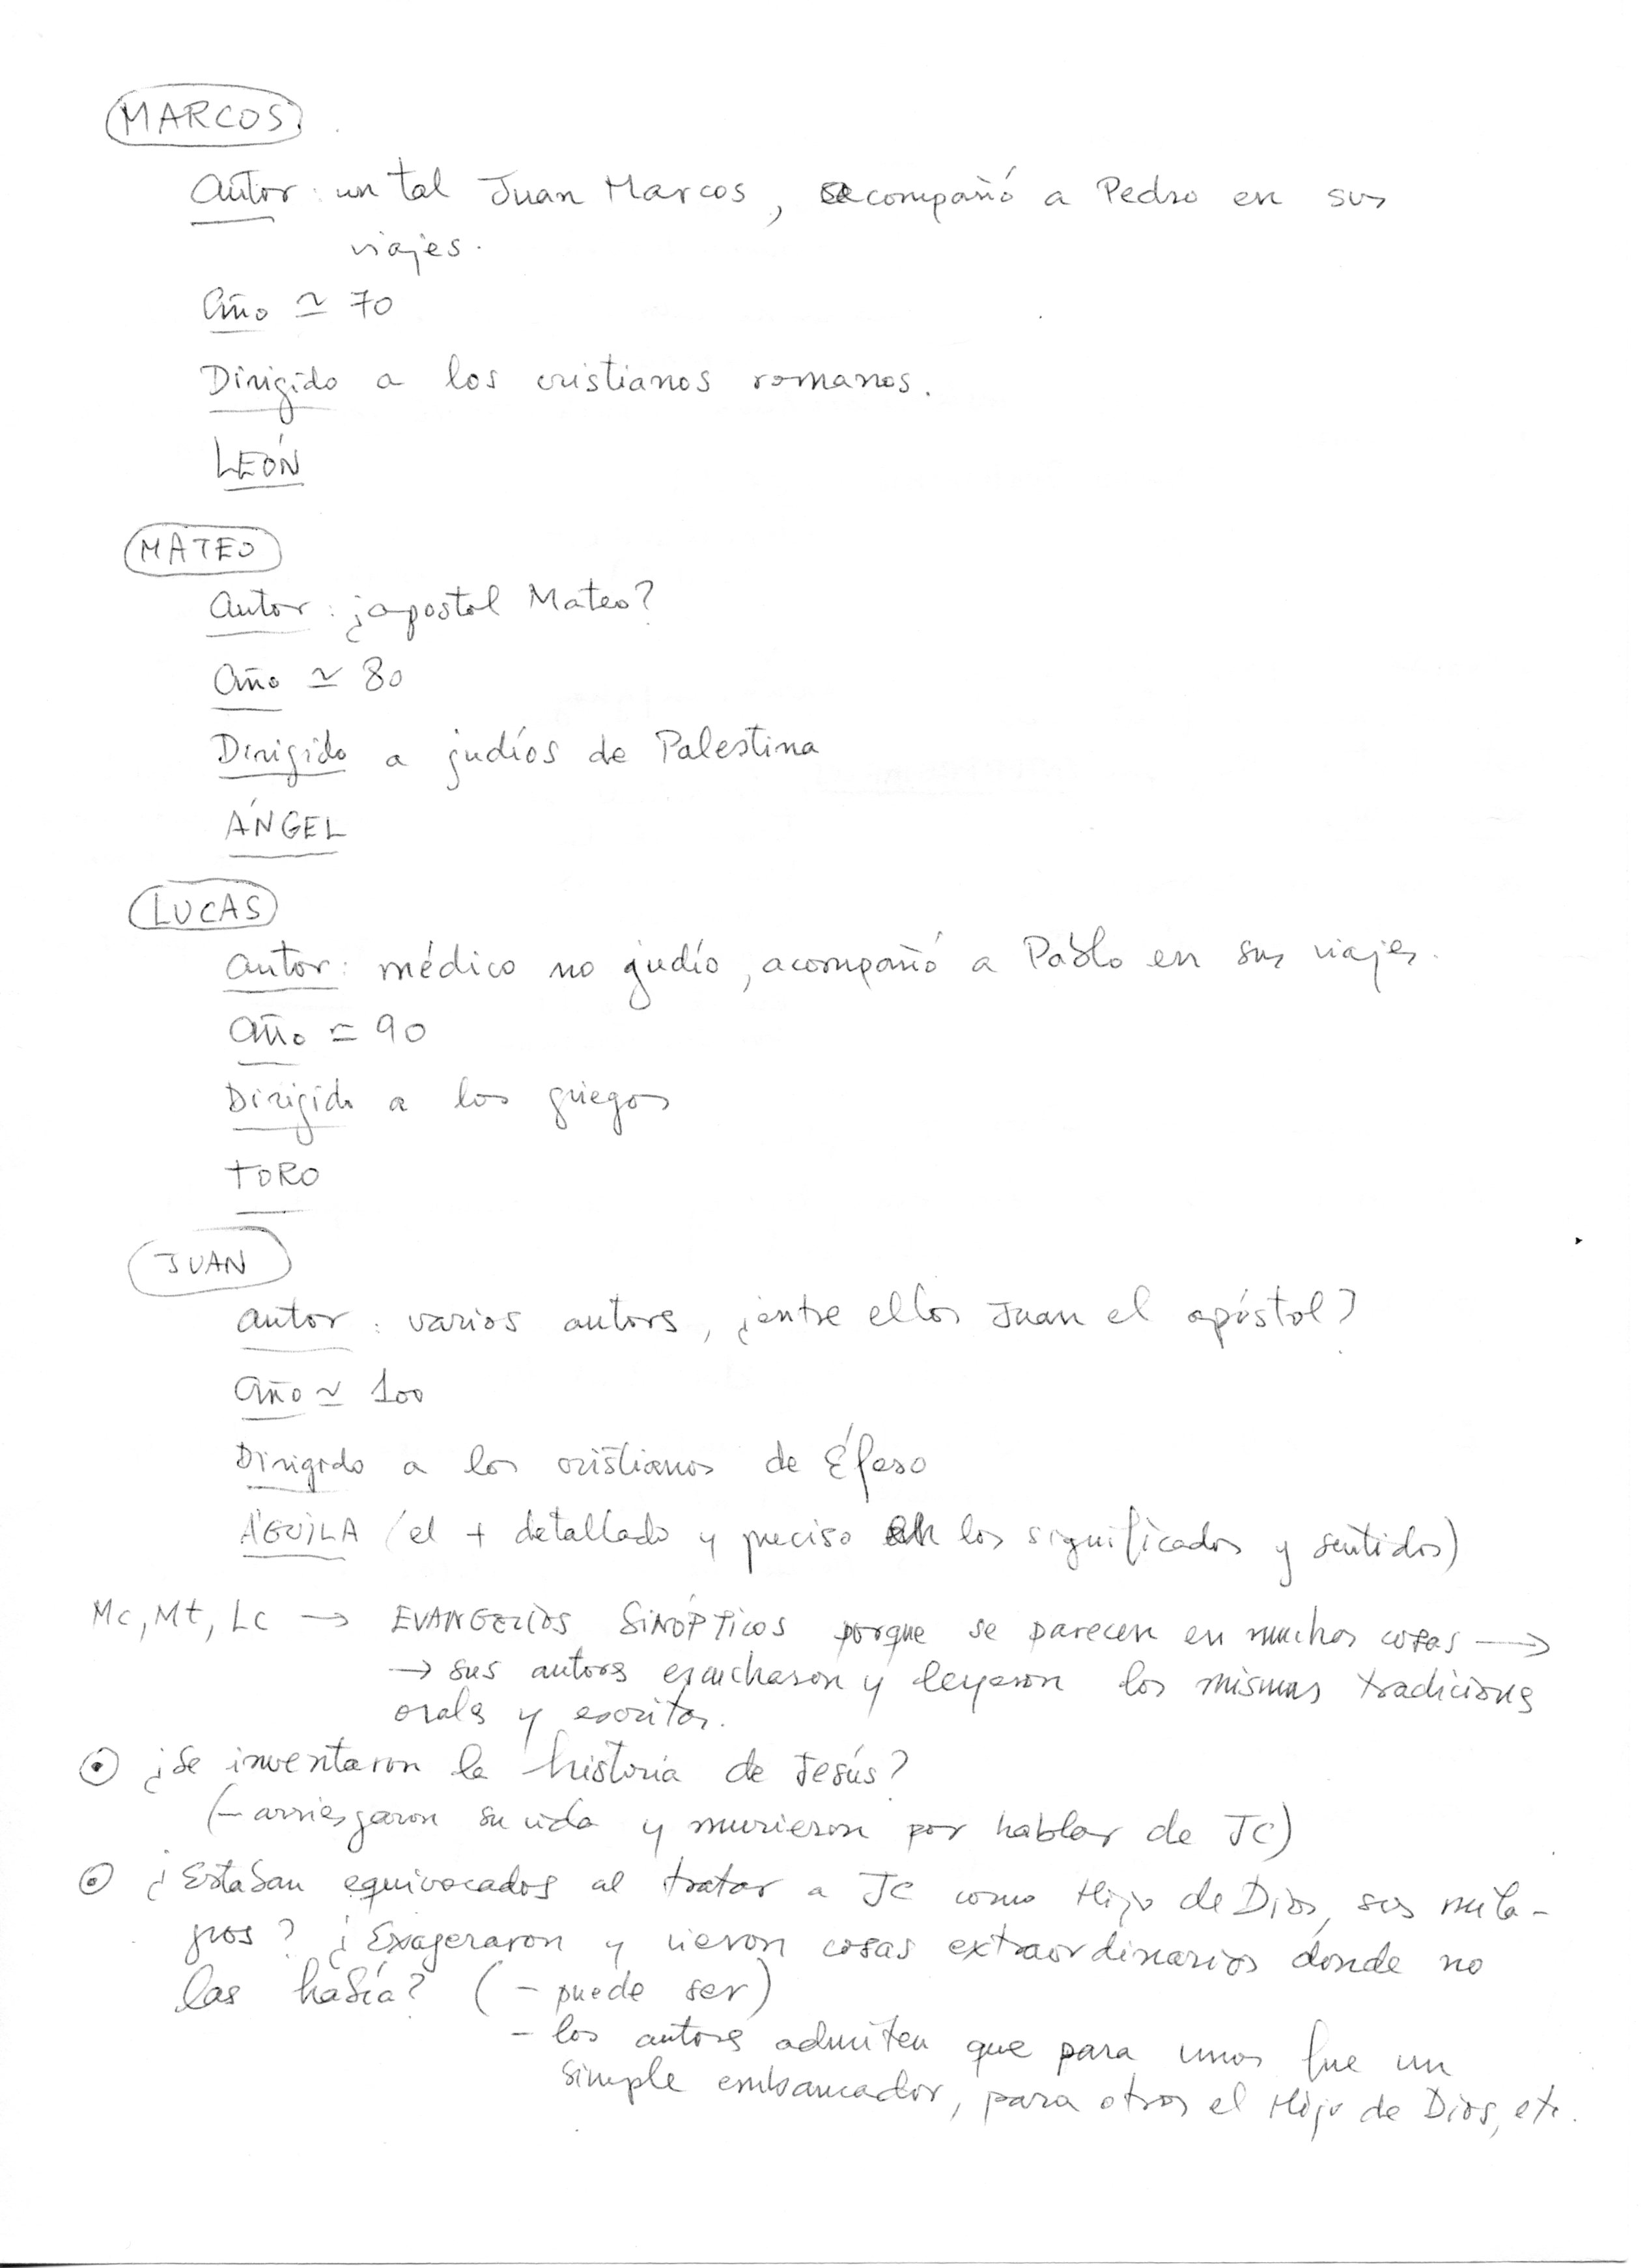 MARCOS
Autor: un tal Juan Marcos, acompañó a Pedro en sus
viajes.
Año ≃ 70
Dirigido a los cristianos romanos.
LEÓN
MATEO
Autor: ¿apostol Mateo?
Año ≃ 80
Dirigido a judíos de Palestina
ÁNGEL
LUCAS
Autor: médico no judío, acompañó a Pablo en sus viajes.
Año ≃ 90
Dirigido a los griegos
TORO
JUAN
Autor: varios autores, ¿entre ellos Juan el apóstol?
Año ≃ 100
Dirigido a los cristianos de Éfeso
ÁGUILA (el + detallado y preciso en los significados y sentidos)
Mc, Mt, Lc → EVANGELIOS SINÓPTICOS porque se parecen en muchas cosas →
→ sus autores escucharon y leyeron las mismas tradiciones
orales y escritas.
⊙ ¿Se inventaron la historia de Jesús?
(- arriesgaron su vida y murieron por hablar de JC)
⊙ ¿Estaban equivocados al tratar a JC como Hijo de Dios, sus mila-
gros? ¿Exageraron y vieron cosas extraordinarias donde no
las había? (- puede ser)
- los autores admiten que para unos fue un
simple embaucador, para otros el Hijo de Dios, etc.